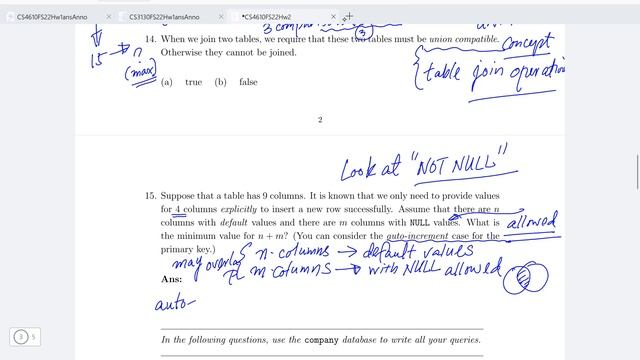 CS4610FS22Hw1ansAnno
CS3130FS22Hw1ansAnno
*CS4610FS22Hw2
3
15 → ?
(max)
14. When we join two tables, we require that these two tables must be union compatible.
Otherwise they cannot be joined.
(a) true (b) false
concept
table join operation
2
Look at "NOT NULL"
15. Suppose that a table has 9 columns. It is known that we only need to provide values
for 4 columns explicitly to insert a new row successfully. Assume that there are n
columns with default values and there are m columns with NULL values. What is
allowed
the minimum value for n + m? (You can consider the auto-increment case for the
primary key.)
may overlap
n-columns → default values
m columns → with NULL allowed
Ans:
auto-
In the following questions, use the company database to write all your queries.
3 5